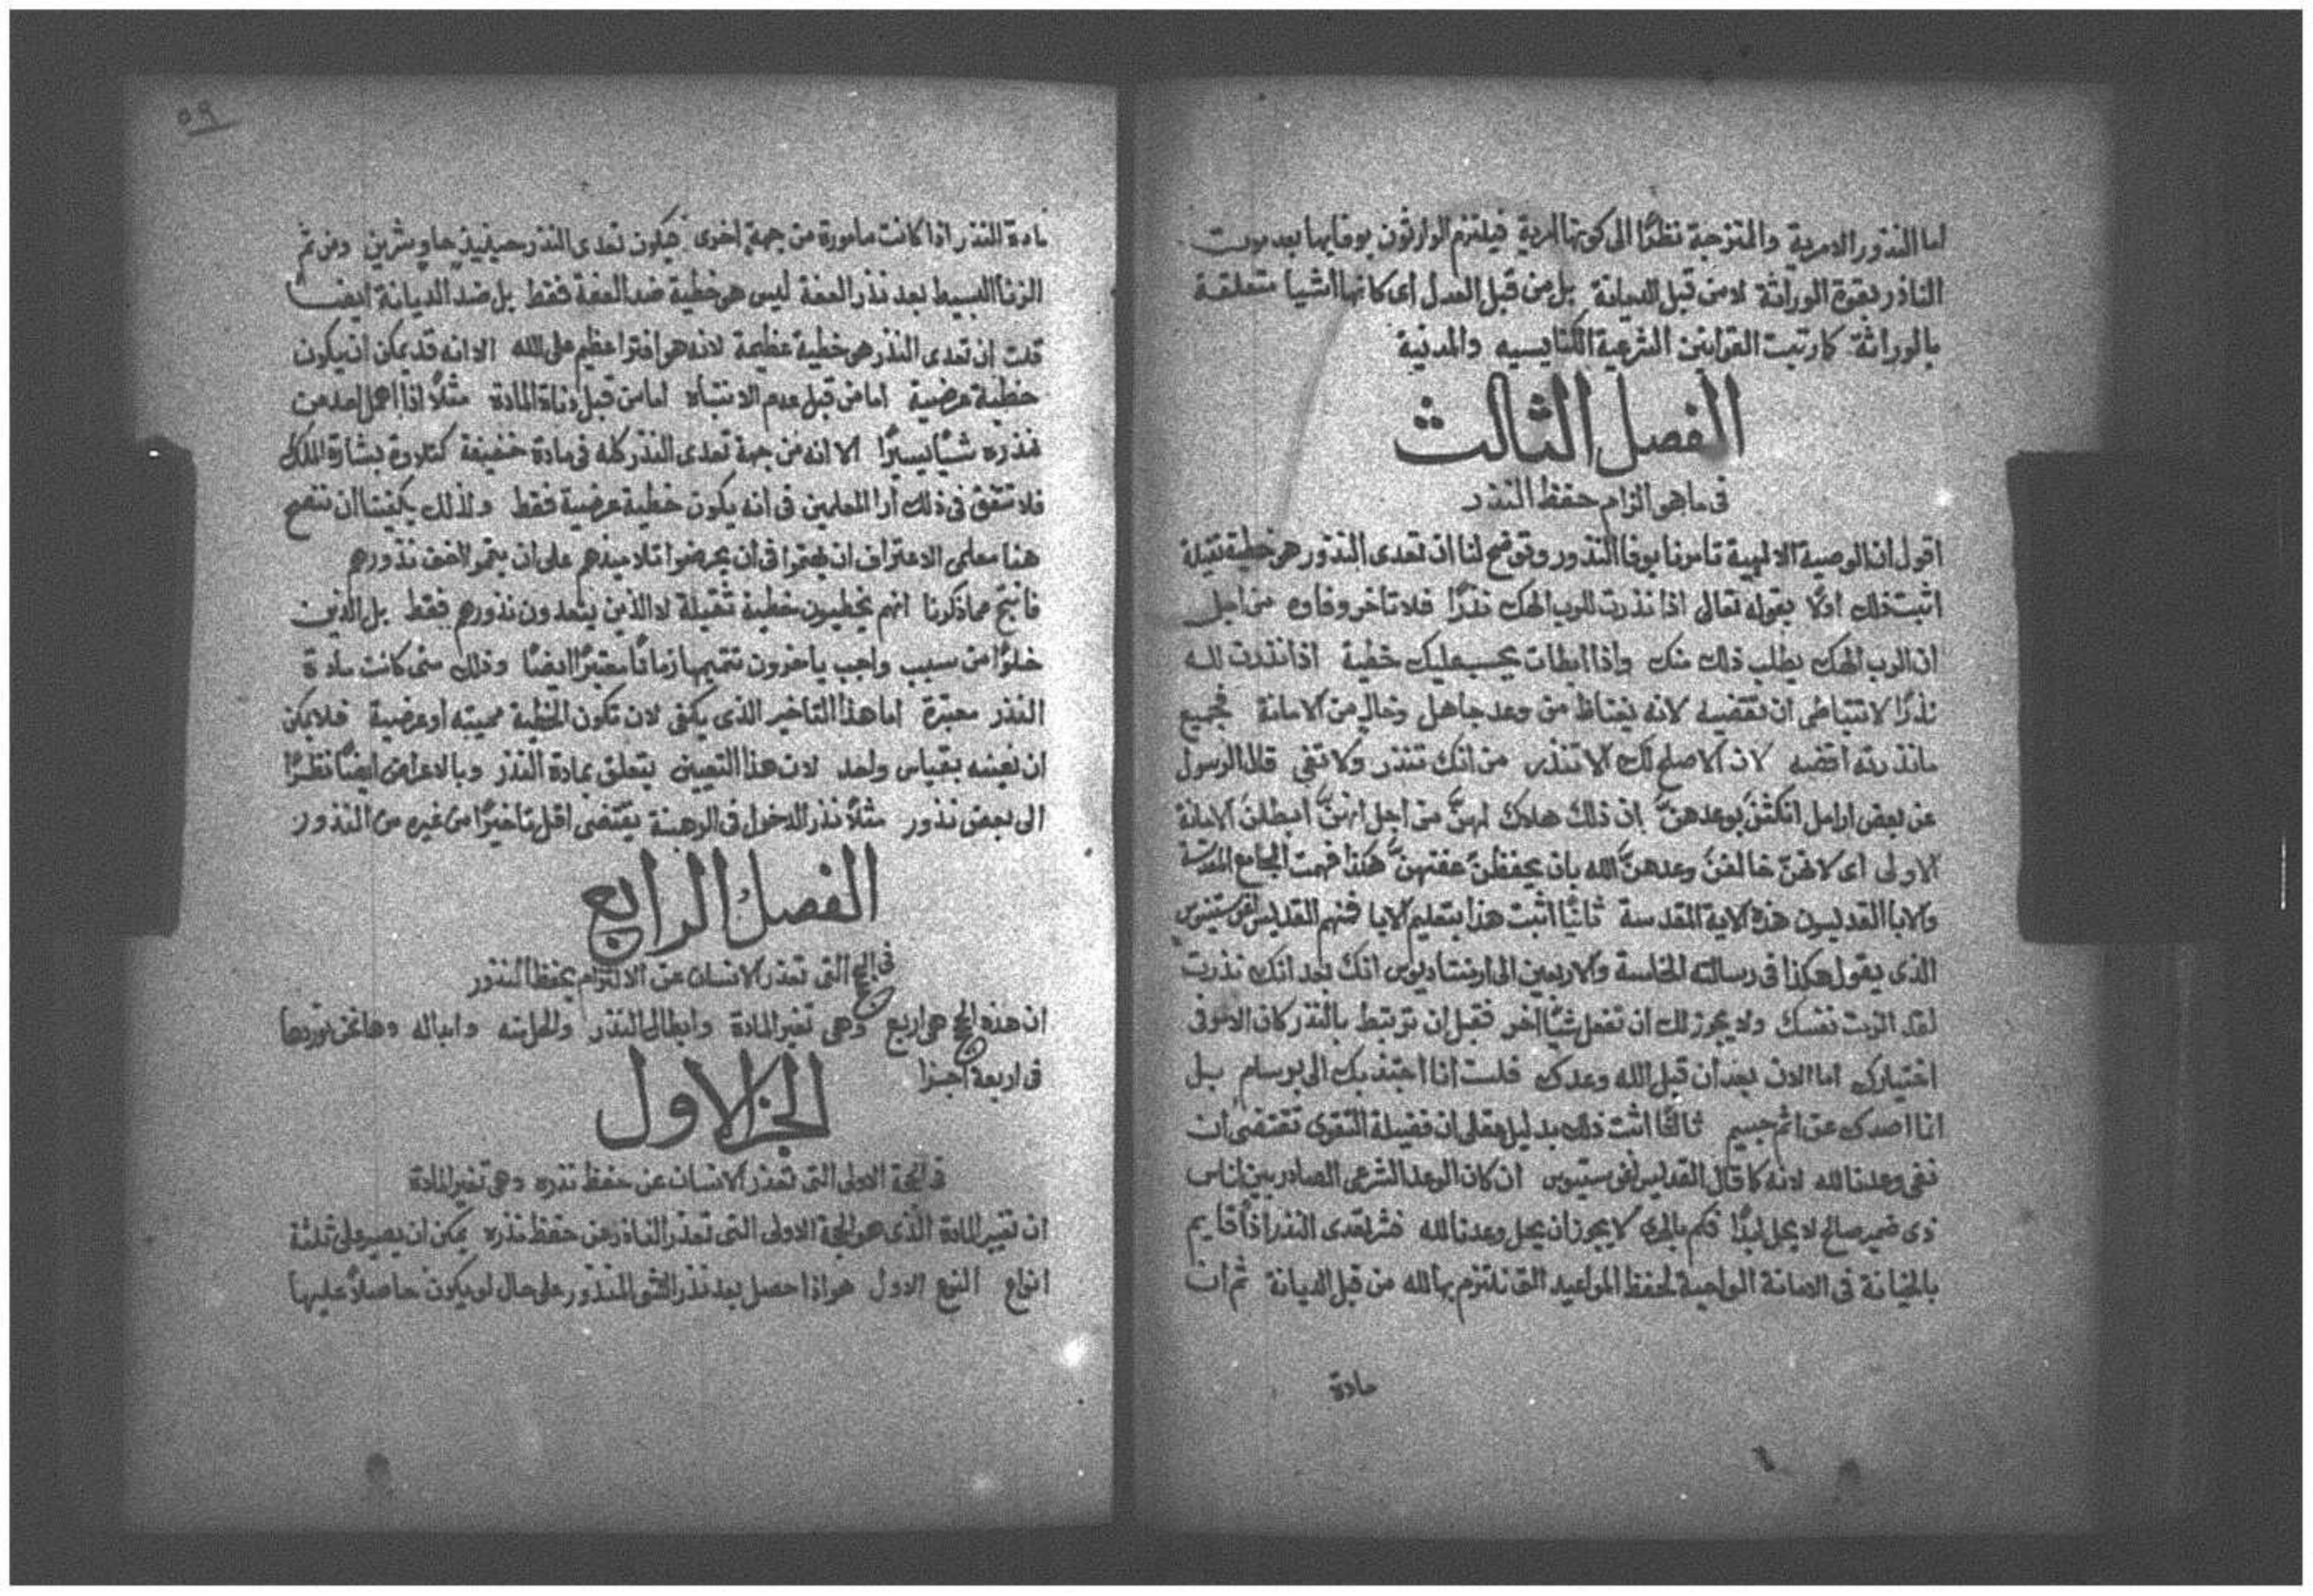 اما النذور الامرية والمتزجة نظرًا الى كونها امرية فيلتزم الوارثون بوفايها بعد موت
الناذر بقوة الوراثة لا من قبل الديانة بل من قبل العدل اى كانها اشيا متعلقة
بالوراثة كارتبت القوانين الشرعية الكنايسيه والمدنية
الفصل الثالث
فى ما هو الزام حفظ النذر
اقول ان الوصية الالهية تامرنا بوفا النذور وتوضح لنا ان تعدى النذور هو خطية ثقيلة
اثبت ذلك اولًا بقوله تعالى اذا نذرت للرب الهك نذرًا فلا تاخر وفاوه من اجل
ان الرب الهك يطلب ذلك منك واذا ابطات يحسب عليك خطية اذا نذرت لله
نذرًا لا تتباطى ان تقضيه لانه يغتاظ من وعد جاهل وخال من الامانة فجميع
ما نذرته اقضه لان الاصلح لك الا تنذر من انك تنذر ولا تفى قال الرسول
عن بعض ارامل انكثن بوعدهنَّ ان ذلك هلاك لهنَّ من اجل انهنَّ ابطلن الامانة
الاولى اى لانهنّ خالفنَ وعدهنَّ الله بان يحفظنَ عفتهنَّ هكذا فهمت المجامع المقدسة
والابا القديسون هذه الاية المقدسة ثانيًا اثبت هذا بتعليم الابا فمنهم القديس اغوستينوس
الذى يقول هكذا فى رسالته الخامسة والاربعين الى ارمنتاديوس انك بعد انك نذرت
لقد الزمت نفسك ولا يجوز لك ان تفعل شيًا اخر فقبل ان ترتبط بالنذر كان الامر فى
اختيارك اما الان بعد أن قبل الله وعدك فلست أنا اجتذبك الى بر سام بل
انا اصدك عن اثم جسيم ثالثًا اثبت ذلك بدليل عقلى ان فضيلة التقوى تقتضى ان
نفى وعدنا لله لانه كما قال القديس اغوستينوس ان كان الوعد الشرعى الصادر بين اناس
ذى ضمير صالح لا يحل ابدًا فكم بالحرى لا يجوز ان يحل وعدنا لله فشر تعدى النذر اذًا قايم
بالخيانة فى الامانة الواجبة لحفظ المواعيد التى نلتزم بها لله من قبل الديانة ثم ان
مادة
٥٩
مادة النذر اذا كانت مامورة من جهة اخرى فيكون تعدى النذر حينيذٍ حاوٍ شرين ومن ثم
الزنا البسيط بعد نذر العفة ليس هو خطية ضد العفة فقط بل ضد الديانة ايضًا
قلت ان تعدى النذر هو خطية عظيمة لانه هو افترا عظيم على الله الا انه قد يمكن ان يكون
خطية عرضية اما من قبل عدم الانتباه اما من قبل دناة المادة مثلًا اذا اهمل احد من
نذره شيًا يسيرًا الا انه من جهة تعدى النذر كله فى مادة خفيفة كتلاوة بشارة الملاك
فلا تتفق فى ذلك أرا المعلمين فى انه يكون خطية عرضية فقط ولذلك يكفينا ان ننصح
هنا معلمى الاعتراف ان يهتموا فى أن يحرضوا تلاميذهم على ان يتمموا اخف نذورهم
فانتج مما ذكرنا انهم يخطيون خطية ثقيلة لا الذين يتعدون نذورهم فقط بل الذين
خلوًا من سبب واجب ياخرون تتميمها زمانًا معتبرًا ايضًا وذلك متى كانت مادة
النذر معتبرة اما هذا التاخير الذى يكفى لان تكون الخطية مميته او عرضية فلا يمكن
ان نعينه بقياس واحد لان هذا التعيين يتعلق بمادة النذر وبالاعراض ايضًا نظرًا
الى بعض نذور مثلًا نذر الدخول فى الرهبنة يقتضى اقل تاخيرًا من غيره من النذور
الفصل الرابع
فى الحجج التى تعذر الانسان عن الالتزام بحفظ النذور
ان هذه الحجج هى اربع وهى تغير المادة وابطال النذر والحل منه وابداله وها نحن نوردها
فى اربعة اجزا
الجز الاول
فى الحجة الاولى التى تعذر الانسان عن حفظ نذره وهى تغير المادة
ان تغيير المادة الذى هو الحجة الاولى التى تعذر الناذر عن حفظ نذره يمكن ان يصير على ثلثة
انواع النوع الاول هو اذا حصل بعد نذر الشى المنذور على حال لو يكون حاصلًا عليها